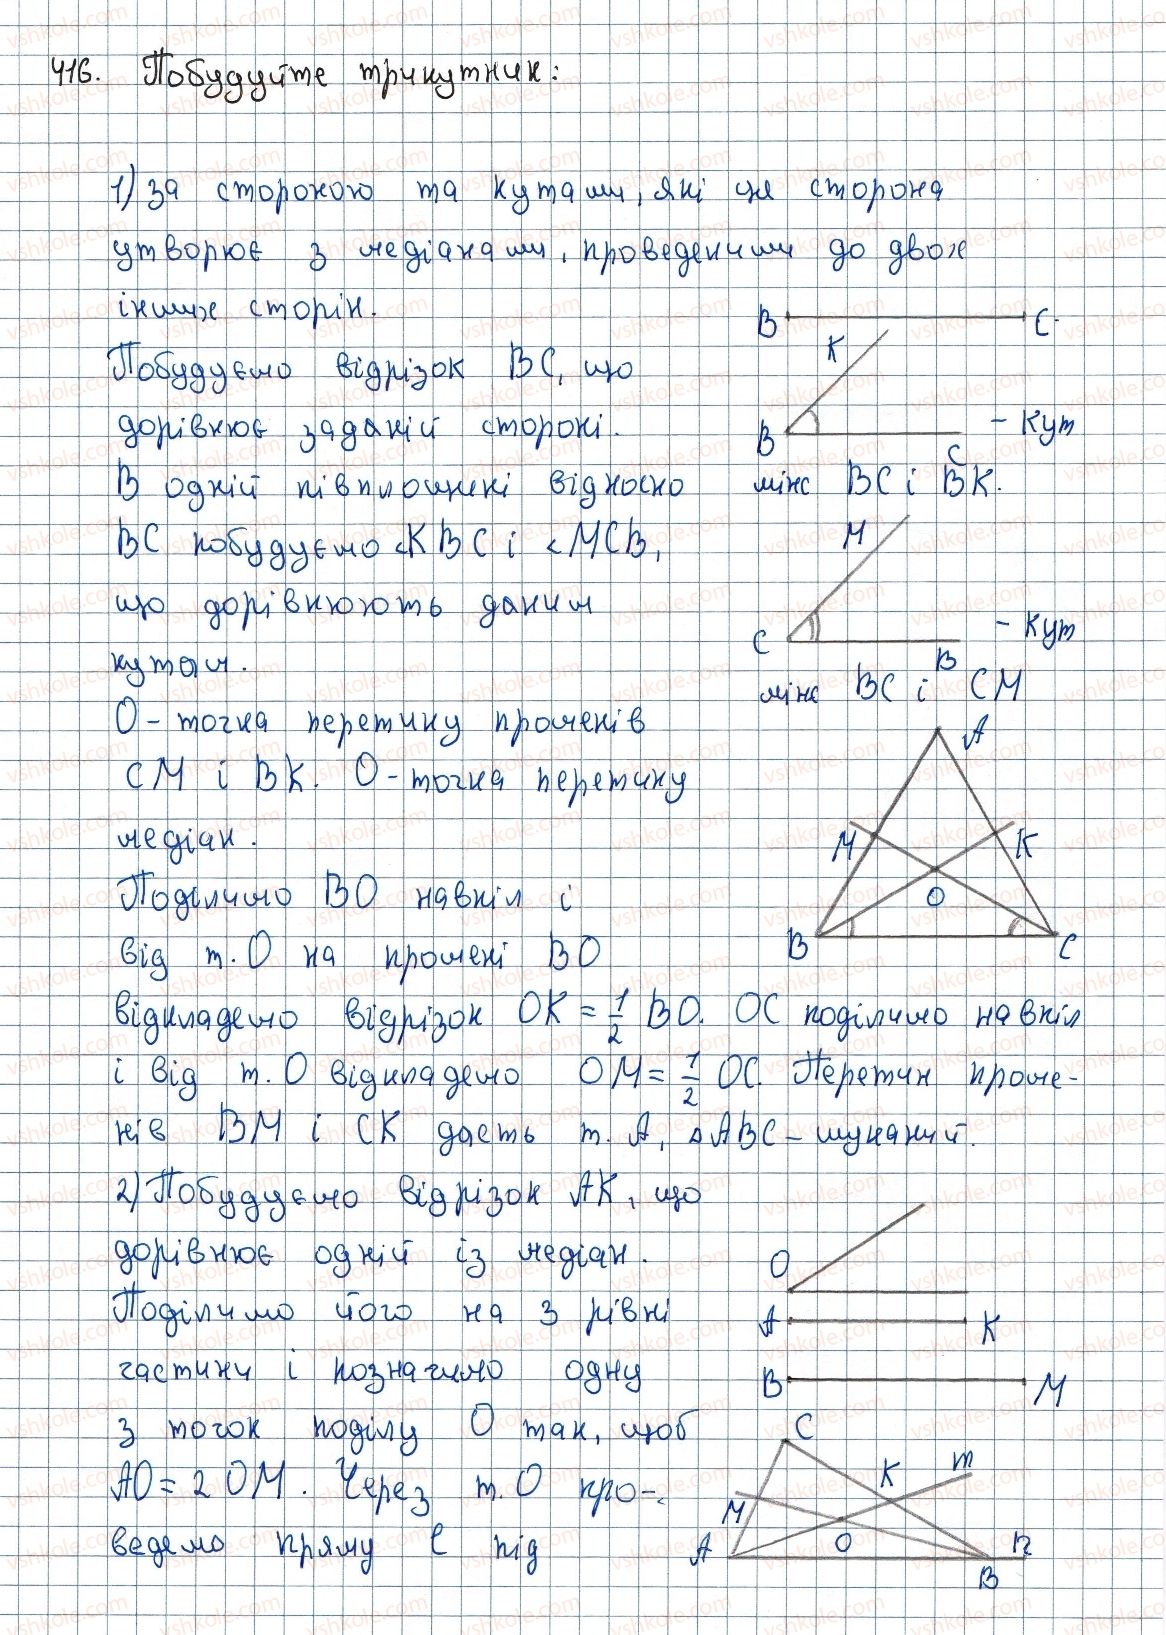 416. Побудуйте трикутник:
1) за стороною та кутами, які ця сторона
утворює з медіанами, проведеними до двох
інших сторін.
B C
Побудуємо відрізок BC, що
K
дорівнює заданій стороні.
B C - кут
В одній півплощині відносно
між BC і BK.
BC побудуємо <KBC і <MCB,
M
що дорівнюють даним
C B - кут
кутам.
між BC і CM
O - точка перетину променів
A
CM і BK. O - точка перетину
медіан.
M K
Поділимо BO навпіл і
O
від т. O на промені BO
B C
відкладемо відрізок OK = 1/2 BO. OC поділимо навпіл
і від т. O відкладемо OM = 1/2 OC. Перетин проме-
нів BM і CK дасть т. A, ΔABC - шуканий.
2) Побудуємо відрізок AK, що
дорівнює одній із медіан.
O
Поділимо його на 3 рівні
A K
частини і позначимо одну
B M
з точок поділу O так, щоб
C
AO = 2 OM. Через т. O про-
K m
M
ведемо пряму l під
A O B n